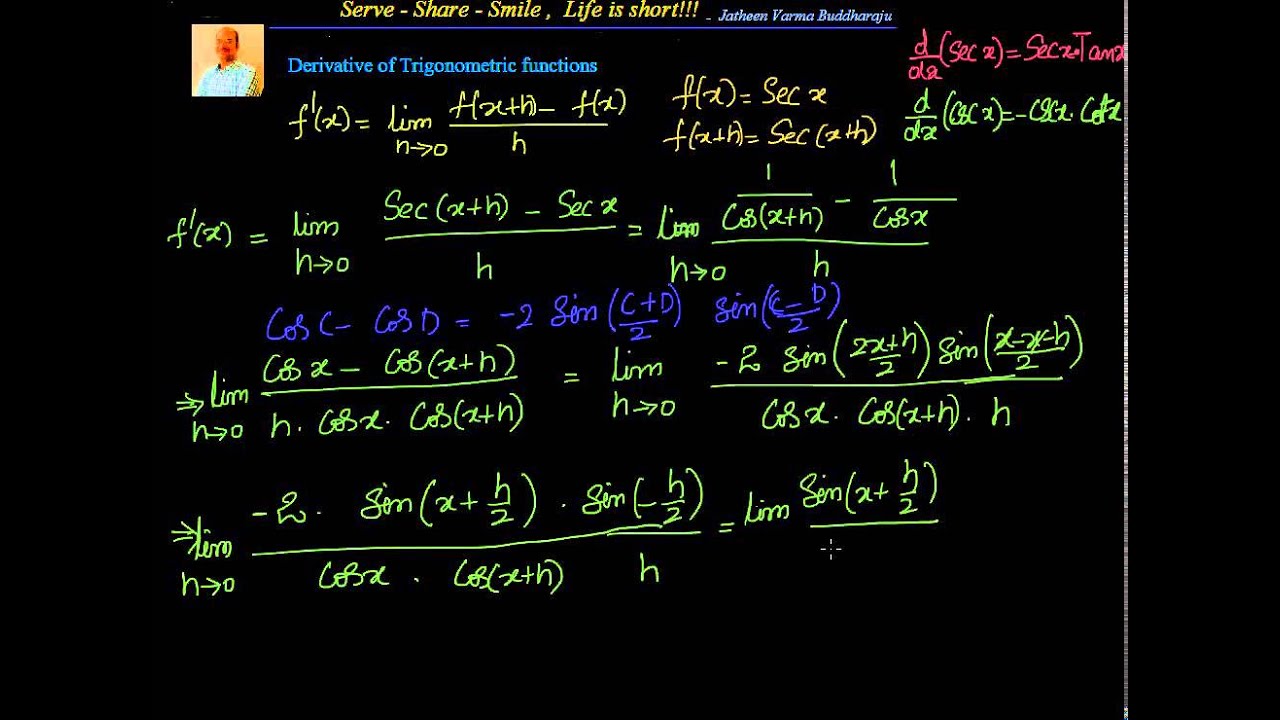 Serve - Share - Smile , Life is short!!! - Jatheen Varma Buddharaju
Derivative of Trigonometric functions
d/dx (Sec x) = Sec x · Tan x
f'(x) = lim h→0 (f(x+h) − f(x))/h
f(x) = Sec x
f(x+h) = Sec(x+h)
d/dx (Csc x) = −Csc x · Cot x
f'(x) = lim h→0 (Sec(x+h) − Sec x)/h = lim h→0 (1/Cos(x+h) − 1/Cos x)/h
Cos C − Cos D = −2 Sin((C+D)/2) Sin((C−D)/2)
⇒ lim h→0 (Cos x − Cos(x+h))/(h · Cos x · Cos(x+h)) = lim h→0 (−2 Sin((2x+h)/2) Sin((x−x−h)/2))/(Cos x · Cos(x+h) · h)
⇒ lim h→0 (−2 · Sin(x + h/2) · Sin(−h/2))/(Cos x · Cos(x+h) h) = lim Sin(x + h/2)